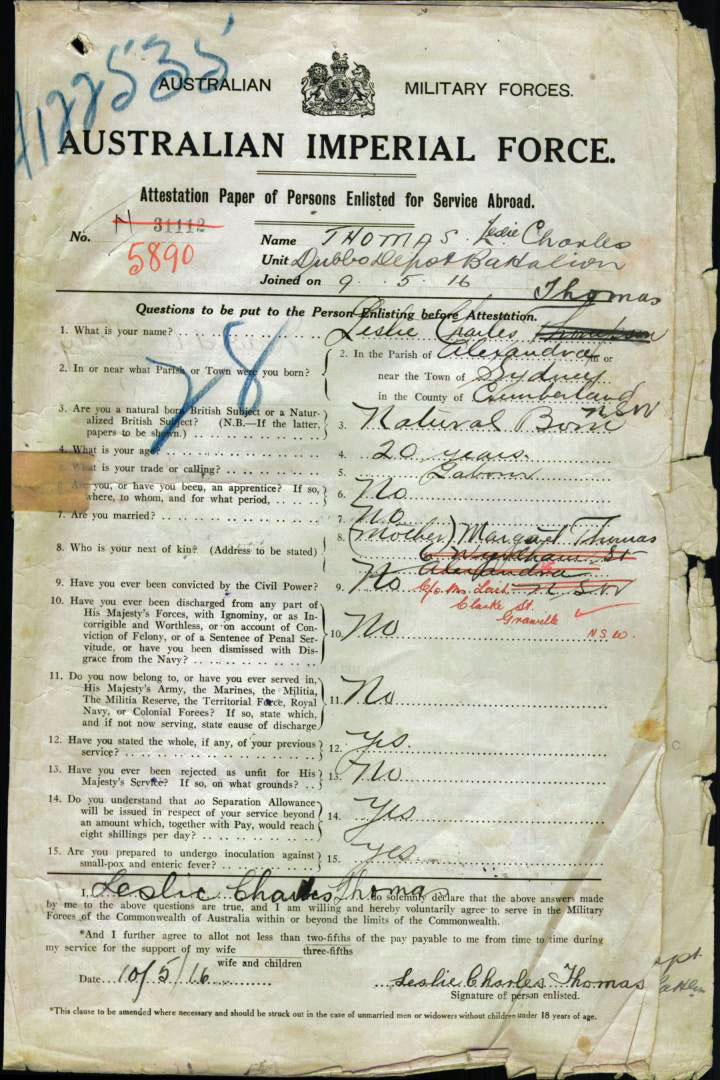 A122535
AUSTRALIAN MILITARY FORCES.
AUSTRALIAN IMPERIAL FORCE.
Attestation Paper of Persons Enlisted for Service Abroad.
No. N 31112
5890
Name THOMAS Leslie Charles
Unit Dubbo Depot Battalion
Joined on 9. 5. 16
Questions to be put to the Person Enlisting before Attestation.
Thomas
1. What is your name? Leslie Charles
28
2. In or near what Parish or Town were you born?
2. In the Parish of Alexandria or
near the Town of Sydney
in the County of Cumberland
NSW
3. Are you a natural born British Subject or a Natu-
ralized British Subject? (N.B.—If the latter,
papers to be shown.)
3. Natural Born
4. What is your age? 4. 20 years.
5. What is your trade or calling? 5. Labour
6. Are you, or have you been, an apprentice? If so,
where, to whom, and for what period,
6. No
7. Are you married? 7. No
8. Who is your next of kin? (Address to be stated)
8. (Mother) Margaret Thomas
Wyndham St
Alexandria
N S W
c/o Mrs
Clarke St.
Granville
N S W.
9. Have you ever been convicted by the Civil Power? 9. No
10. Have you ever been discharged from any part of
His Majesty's Forces, with Ignominy, or as In-
corrigible and Worthless, or on account of Con-
viction of Felony, or of a Sentence of Penal Ser-
vitude, or have you been dismissed with Dis-
grace from the Navy?
10. No
11. Do you now belong to, or have you ever served in,
His Majesty's Army, the Marines, the Militia,
The Militia Reserve, the Territorial Force, Royal
Navy, or Colonial Forces? If so, state which,
and if not now serving, state cause of discharge
11. No
12. Have you stated the whole, if any, of your previous
service?
12. Yes.
13. Have you ever been rejected as unfit for His
Majesty's Service? If so, on what grounds?
13. No
14. Do you understand that no Separation Allowance
will be issued in respect of your service beyond
an amount which, together with Pay, would reach
eight shillings per day?
14. Yes
15. Are you prepared to undergo inoculation against
small-pox and enteric fever?
15. Yes
I, Leslie Charles Thomas do solemnly declare that the above answers made
by me to the above questions are true, and I am willing and hereby voluntarily agree to serve in the Military
Forces of the Commonwealth of Australia within or beyond the limits of the Commonwealth.
*And I further agree to allot not less than two-fifths of the pay payable to me from time to time during
three-fifths
my service for the support of my wife
wife and children
Date 10/5/16
Leslie Charles Thomas
Signature of person enlisted.
*This clause to be amended where necessary and should be struck out in the case of unmarried men or widowers without children under 18 years of age.